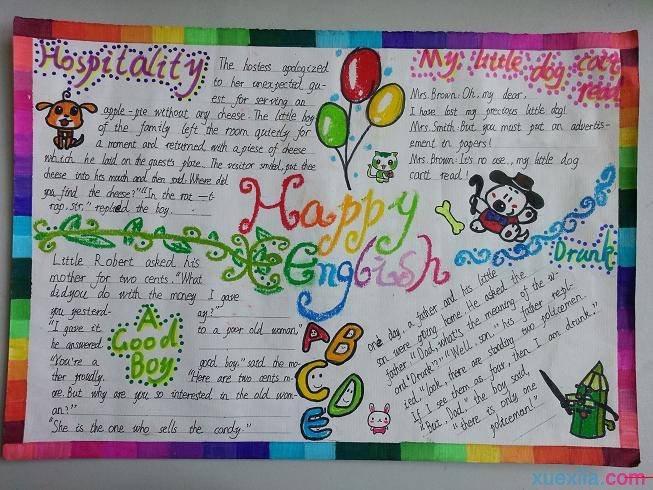 Hospitality
The hostess apologized
to her unexpected gu-
est for serving an
apple-pie without any cheese. The little boy
of the family left the room quietly for
a moment and returned with a piese of cheese
which he laid on the guest's plate. The visitor smiled, put thee
cheese into his mouth and then said: Where did
you find the cheese?" "In the rat —t
rap, sir," replied the boy.
My little dog can't
read
Mrs. Brown: Oh, my dear,
I have lost my precious little dog!
Mrs. Smith: But you must put an advertis-
ement in papers!
Mrs. Brown: It's no use, my little dog
can't read!
Happy
English
Little Robert asked his
mother for two cents. "What
did you do with the money I gave
you yesterd- ay?"
"I gave it to a poor old woman,"
he answered.
A
Good
Boy
"You're a good boy," said the mo-
ther proudly. "Here are two cents m-
ore. But why are you so interested in the old wom-
an?"
"She is the one who sells the candy."
A B
C D
E
Drunk
One day, a father and his little
son were going home. He asked the
father: "Dad, what's the meaning of the w-
ord 'Drunk'?" "Well, son," his father repli-
ed, "look, there are standing two policemen.
If I see them as four, then I am drunk."
"But, Dad," the boy said,
"there is only one
policeman!"
xuexila.com